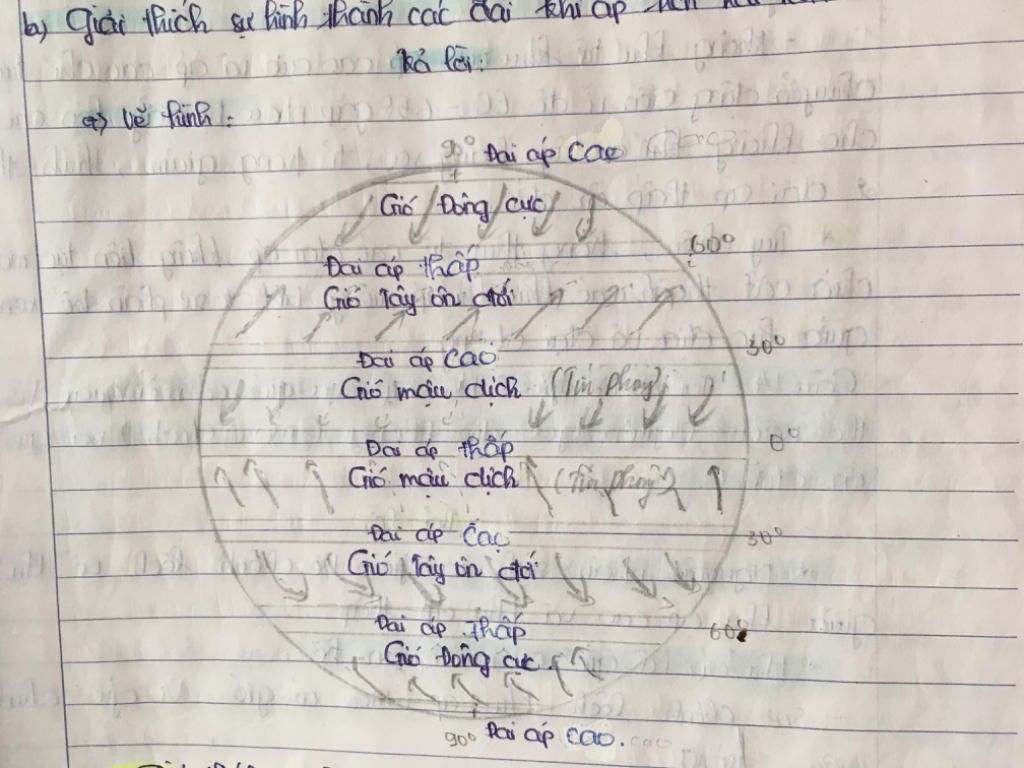 b) Giải thích sự hình thành các đai khí áp
Trả lời:
Vẽ hình:
90° Đai áp cao
Gió Đông cực
60°
Đai áp thấp
Gió Tây ôn đới
30°
Đai áp cao
Gió mậu dịch (Tín phong)
0°
Đai áp thấp
Gió mậu dịch (Tín phong)
Đai áp cao 30°
Gió Tây ôn đới
Đai áp thấp 60°
Gió Đông cực
90° Đai áp cao. cao